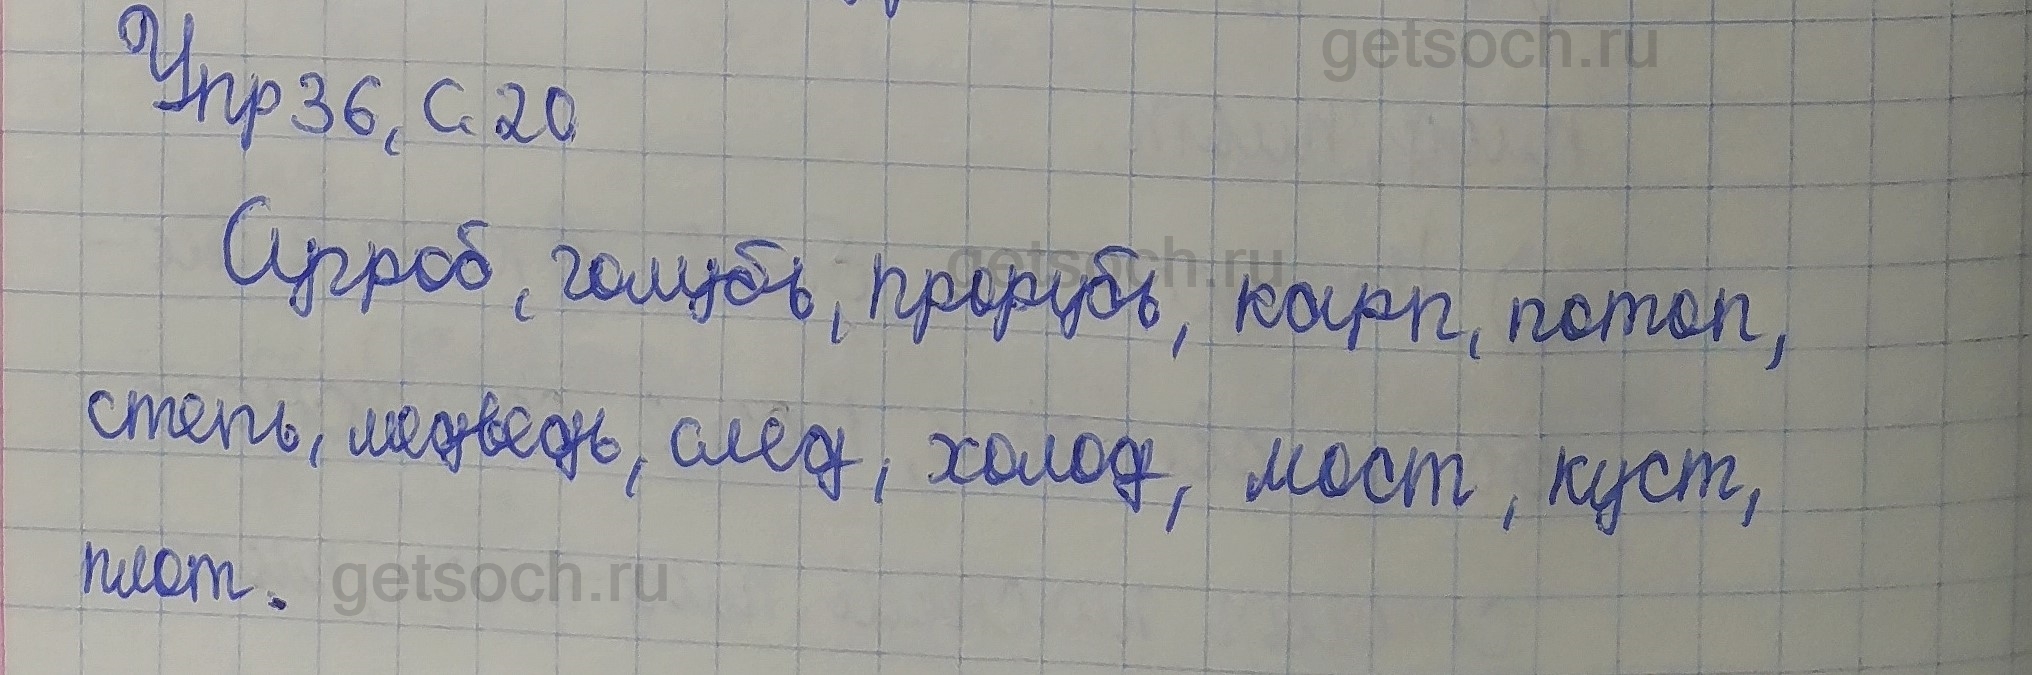 getsoch.ru
Упр 36, с. 20
Сугроб, голубь, прорубь, карп, потоп,
getsoch.ru
степь, медведь, след, холод, мост, куст,
плот.
getsoch.ru